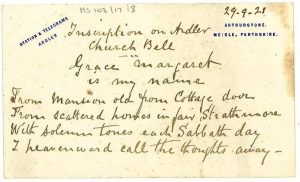 MS 102/17/3
29-9-21
STATION & TELEGRAMS
ARDLER
ARTHURSTONE,
MEIGLE, PERTHSHIRE.
Inscription on Ardler
Church Bell
Grace Margaret
is my name
From Mansion old from Cottage door
From scattered homes in fair Strathmore
With solemn tones each Sabbath day
I heavenward call the thoughts away -